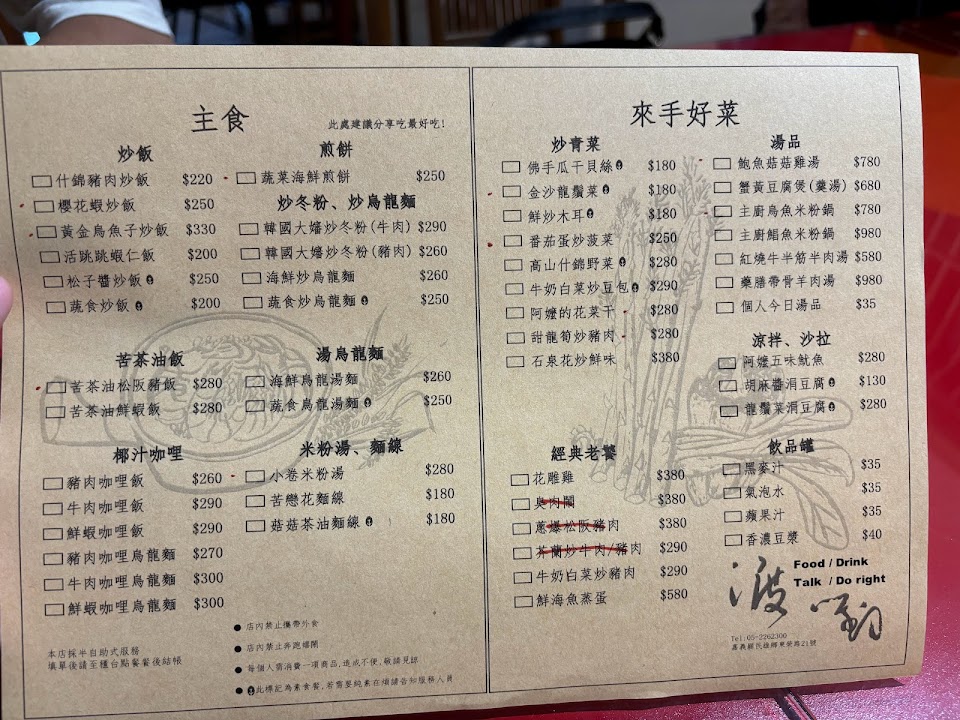 主食
此處建議分享吃最好吃!
炒飯
什錦豬肉炒飯 $220
櫻花蝦炒飯 $250
黃金烏魚子炒飯 $330
活跳跳蝦仁飯 $200
松子醬炒飯 $250
蔬食炒飯 $200
苦茶油飯
苦茶油松阪豬飯 $280
苦茶油鮮蝦飯 $280
椰汁咖哩
豬肉咖哩飯 $260
牛肉咖哩飯 $290
鮮蝦咖哩飯 $290
豬肉咖哩烏龍麵 $270
牛肉咖哩烏龍麵 $300
鮮蝦咖哩烏龍麵 $300
本店採半自助式服務
填單後請至櫃台點餐餐後結帳
煎餅
蔬菜海鮮煎餅 $250
炒冬粉、炒烏龍麵
韓國大嬸炒冬粉(牛肉) $290
韓國大嬸炒冬粉(豬肉) $260
海鮮炒烏龍麵 $260
蔬食炒烏龍麵 $250
湯烏龍麵
海鮮烏龍湯麵 $260
蔬食烏龍湯麵 $250
米粉湯、麵線
小卷米粉湯 $280
苦戀花麵線 $180
菇菇茶油麵線 $180
● 店內禁止攜帶外食
● 店內禁止奔跑嬉鬧
● 每個人需消費一項商品,造成不便,敬請見諒
● 此標記為素食餐,若需要純素在煩請告知服務人員
來手好菜
炒青菜
佛手瓜干貝絲 $180
金沙龍鬚菜 $180
鮮炒木耳 $180
番茄蛋炒菠菜 $250
高山什錦野菜 $280
牛奶白菜炒豆包 $290
阿嬤的花菜干 $280
甜龍筍炒豬肉 $280
石泉花炒鮮味 $380
經典老饕
花雕雞 $380
臭肉鬧 $380
蔥爆松阪豬肉 $380
芥蘭炒牛肉/豬肉 $290
牛奶白菜炒豬肉 $290
鮮海魚蒸蛋 $580
湯品
鮑魚菇菇雞湯 $780
蟹黃豆腐煲(羹湯) $680
主廚烏魚米粉鍋 $780
主廚鯧魚米粉鍋 $980
紅燒牛半筋半肉湯 $580
藥膳帶骨羊肉湯 $980
個人今日湯品 $35
涼拌、沙拉
阿嬤五味魷魚 $280
胡麻醬涓豆腐 $130
龍鬚菜涓豆腐 $280
飲品罐
黑麥汁 $35
氣泡水 $35
蘋果汁 $35
香濃豆漿 $40
Food / Drink
Talk / Do right
Tel:05-2262300
嘉義縣民雄鄉東榮路21號